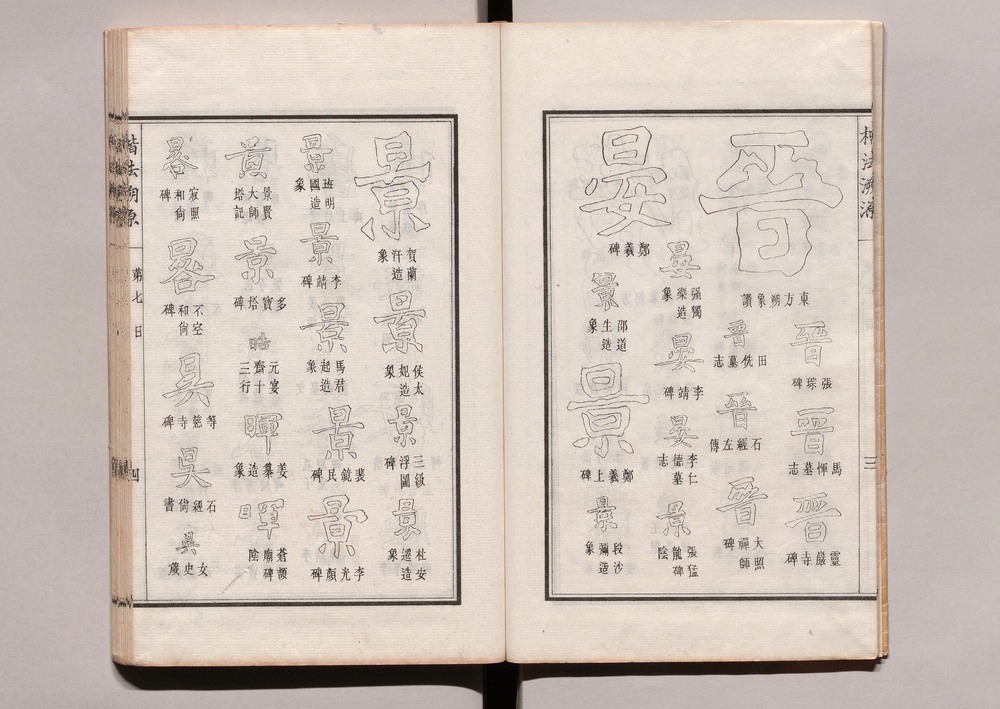 楷法溯源
三
晉
東方朔象讚
晉
張琮碑
晉
馬惲墓志
晉
靈巖寺碑
晉
田侁墓志
晉
石經左傳
晉
大照禪師碑
晏
鄭義碑
晏
强獨樂造象
晏
李靖碑
晏
李德仁墓志
景
張猛龍碑陰
景
邵道生造象
景
鄭義上碑
景
段沙彌造象
景
賀蘭汗造象
景
侯太妃造象
景
三級浮圖碑
景
杜安遷造象
景
班明國造象
景
李靖碑
景
馬君起造象
景
裴鏡民碑
景
李光顏碑
景賢大師塔記
景
多寶塔碑
元宴齋十三行
暉
姜纂造象
暉
蒼頡廟碑陰
晷
寂照和尙碑
晷
不空和尙碑
吳
等慈寺碑
吳
石經尙書
吳
女史箴
楷法溯源
第七
日
四